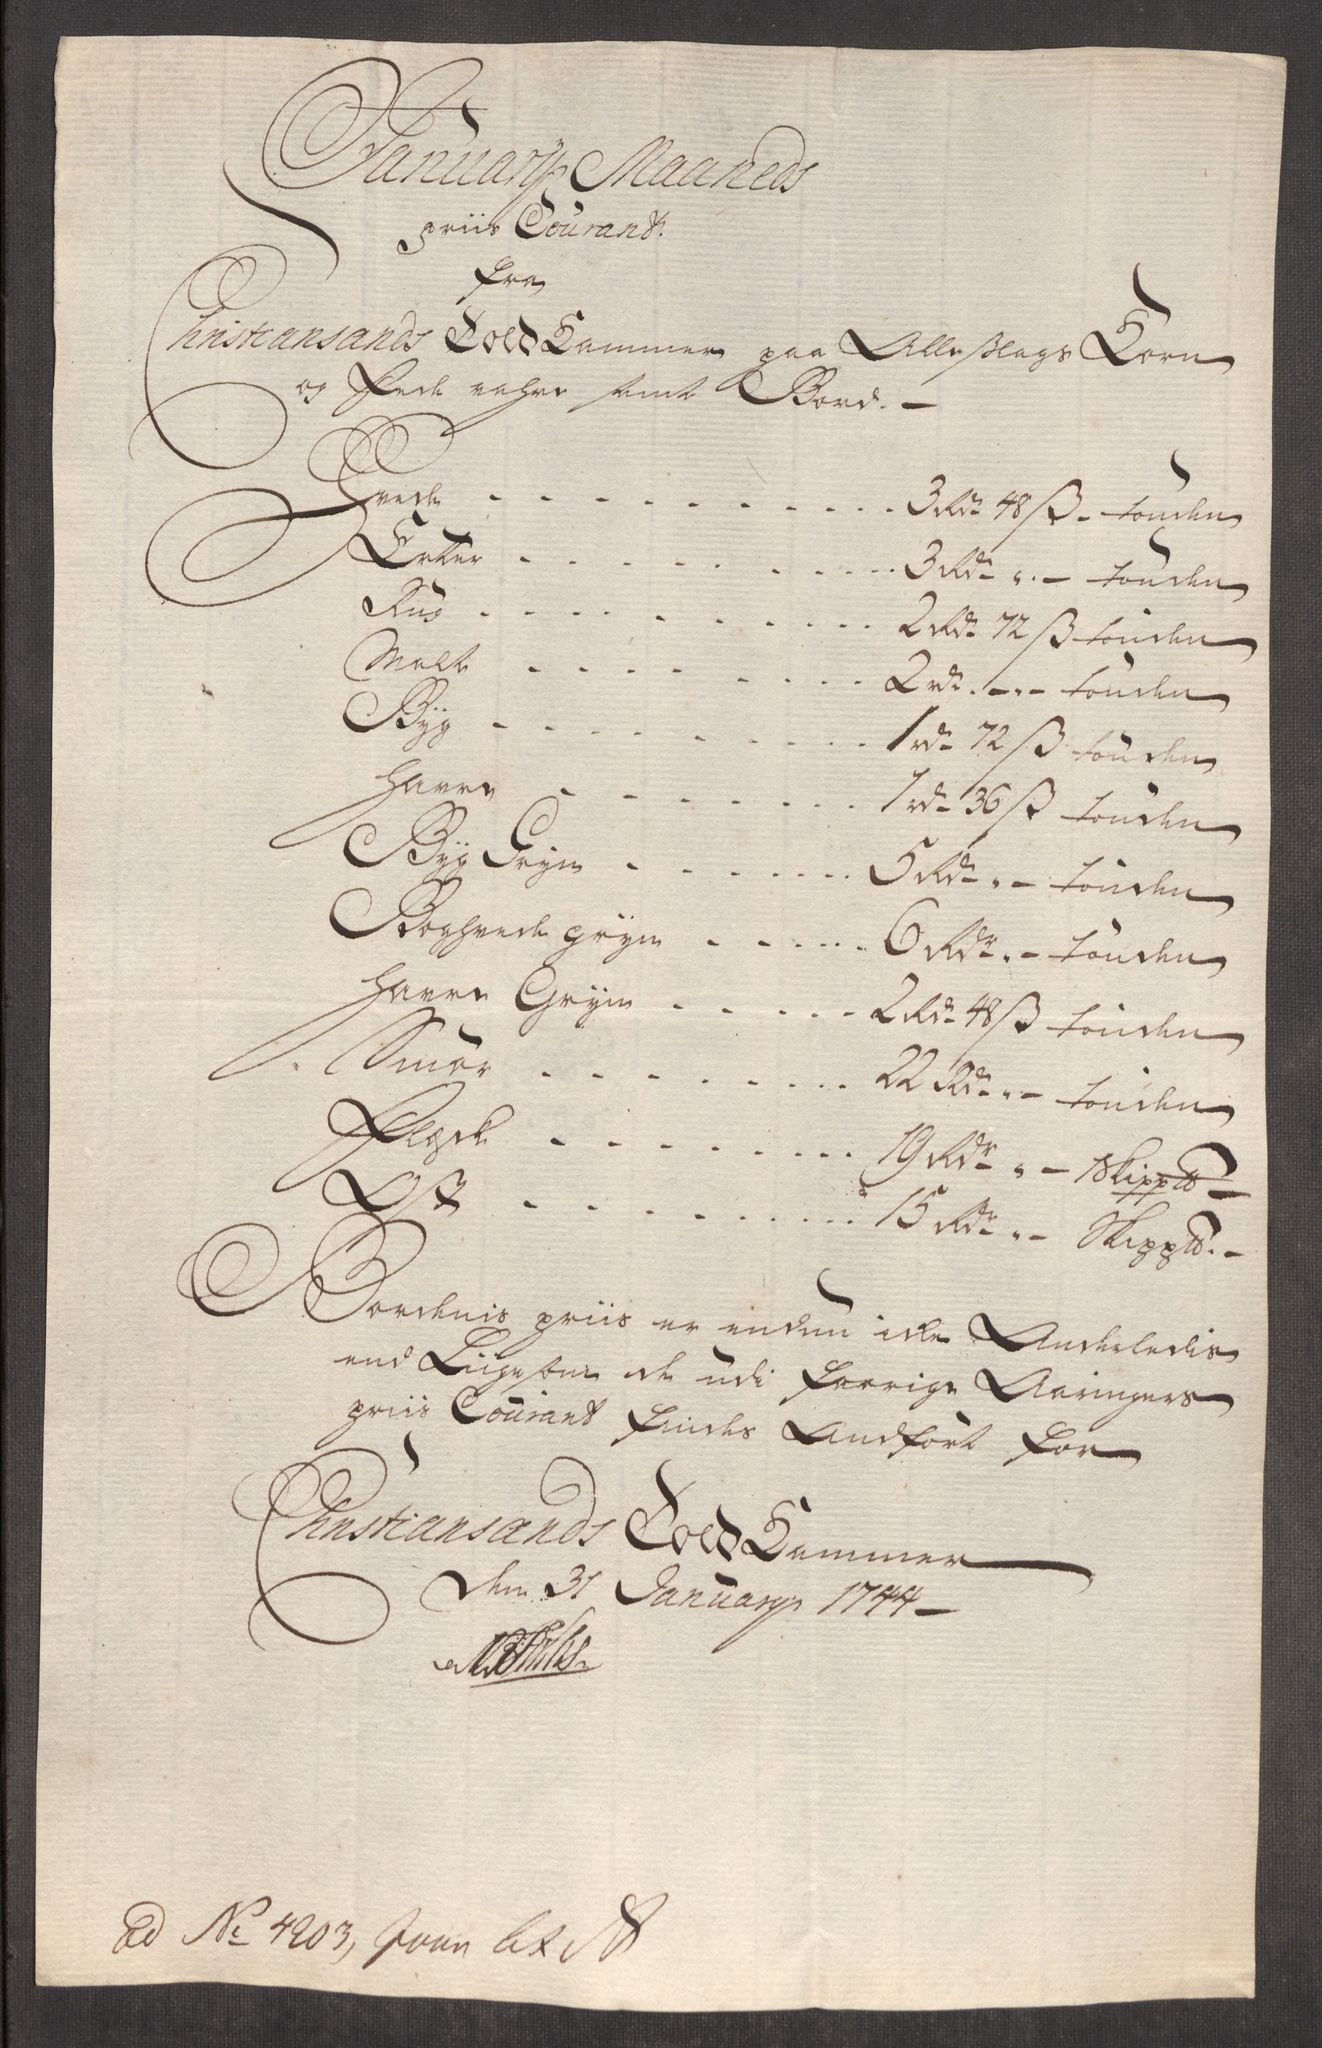 Januarÿ Maaneds
priis Courant
fra
Christiansands Told Kammer paa Alle Slags Korn
og fede vahre samt Bord. –
Hvede - - - - - - - - - 3 Rdr 48 ß - tønden
Erter - - - - - - - - - 3 Rdr „ - tønden
Rug - - - - - - - - - 2 Rdr 72 ß tønden
Malt - - - - - - - - 2 rdr „ - tønden
Bÿg - - - - - - - - - 1 rdr 72 ß tønden
Havre - - - - - - - - 1 rdr 36 ß tønden
Bÿg Grÿn - - - - - - - 5 Rdr „ - tønden
Boghvede grÿn - - - - - 6 Rdr „ - tønden
Havre Grÿn - - - - - 2 Rdr 48 ß tønden
Smør - - - - - - - - 22 Rdr „ - tønden
Flesk - - - - - - - - 19 Rdr „ - 1 Skipp℔ –
Ost - - - - - - - - - 15 Rdr „ - Skipp℔. –
Bordenis priis er enden icke Anderledis
end Liigesom de udi forrige Aaringers
priis Courant findes Andført for
Christiansands Told Kammer
den 31 Januarÿ 1744 –
Ad No 4203, Journ Lit